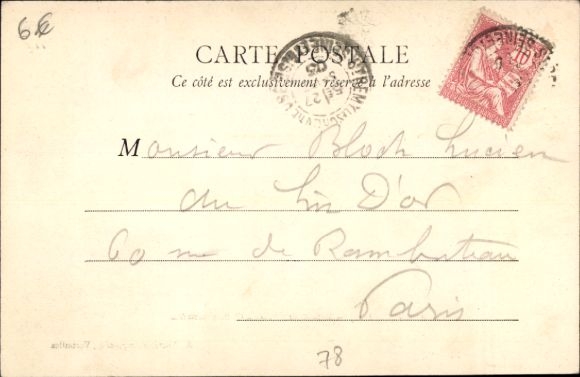 6€
CARTE POSTALE
Ce côté est exclusivement réservé à l'adresse
Monsieur Bloch Lucien
au Lin D'or
60 rue de Rambuteau
Paris
78